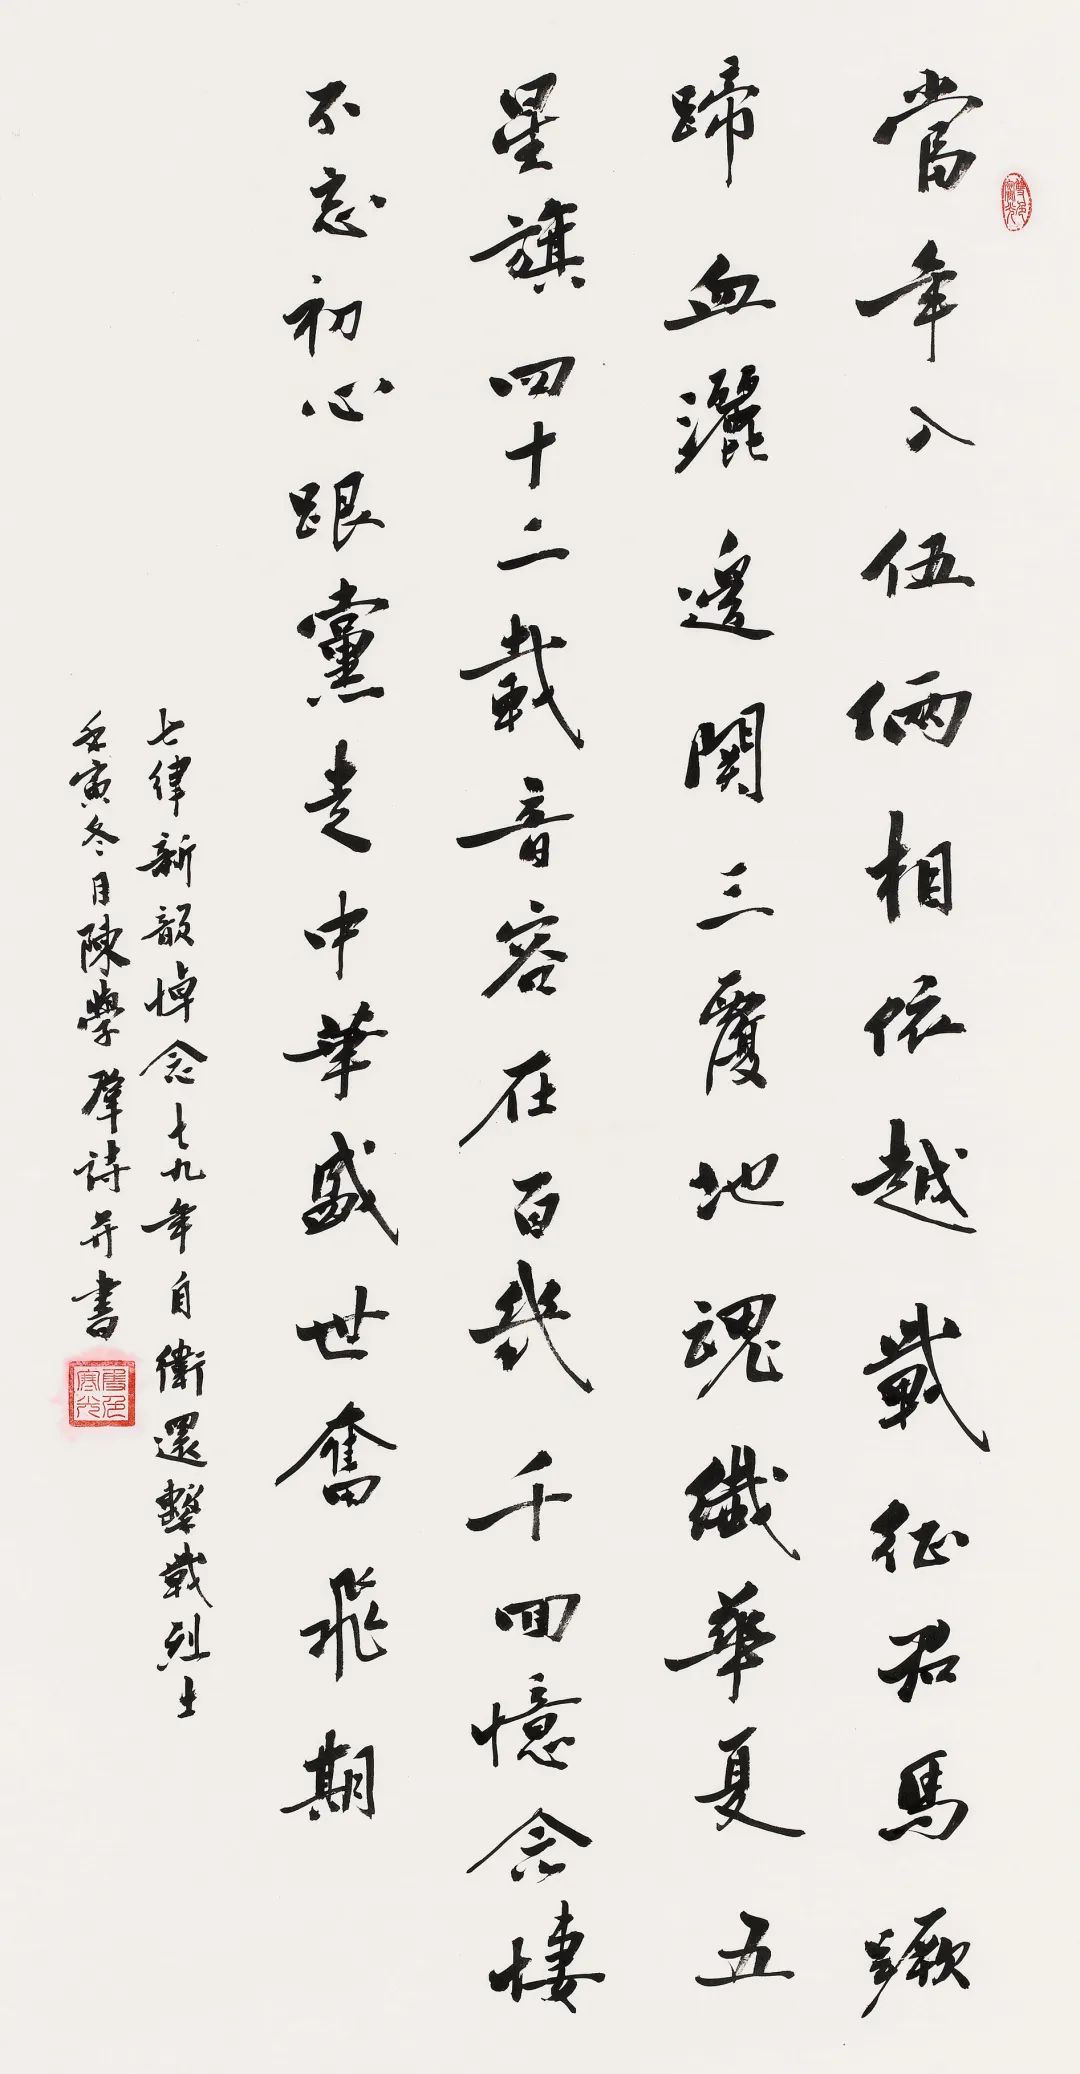 當年入伍倆相依越戰征君馬蹶
蹄血灑邊關三覆地魂纖華夏五
星旗四十二載音容在百幾千回憶念悽
不忘初心跟黨走中華盛世奮飛期
七律新韻悼念七九年自衛還擊戰烈士
壬寅冬月陳學群詩并書